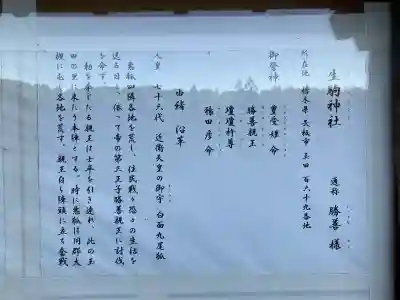 生駒神社 通称 勝善様
所在地 栃木県 矢板市 玉田 百六十九番地
御祭神
豊受姫命
勝善親王
瓊瓊杵尊
猿田彦命
由緒 沿革
人皇 七十六代 近衛天皇の御宇 白面九尾狐
悪狐四隣各地を荒し、住民戦々恐々の生活を
送る日々、依って帝の第三王子勝善親王に討伐
を命ず。
勅を奉じたる親王は士卒を引き連れ、此の玉
田の里に来たり本陣とする。時に悪狐は同郡大
槻に屯し各地を荒す、親王自ら陣頭に立ち合戦